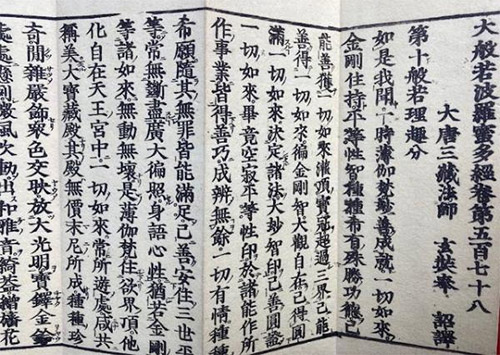 大般若波羅蜜多經卷第五百七十八
第十般若理趣分
大唐三藏法師 玄奘奉 詔譯
如是我聞一時薄伽梵妙善成就一切如來
金剛住持平等性智種種希有殊勝功德已
能善獲一切如來灌頂寶冠超過三界已能
善得一切如來徧金剛智大觀自在已得圓
滿一切如來決定諸法大妙智印已善圓證
一切如來畢竟空寂平等性印於諸能作所
作事業皆得善巧成辨無餘一切有情種種
希願隨其無罪皆能滿足已善安住三世平
等常無斷盡廣大徧照身語心性猶若金剛
等諸如來無動無壞是薄伽梵住欲界頂他
化自在天王宮中一切如來常所遊處咸共
稱美大寶藏殿其殿無價末尼所成種種珍
奇間雜嚴飾衆色交映放大光明寶鐸金鈴
處處懸列微風吹動出和雅音綺蓋繒幡花